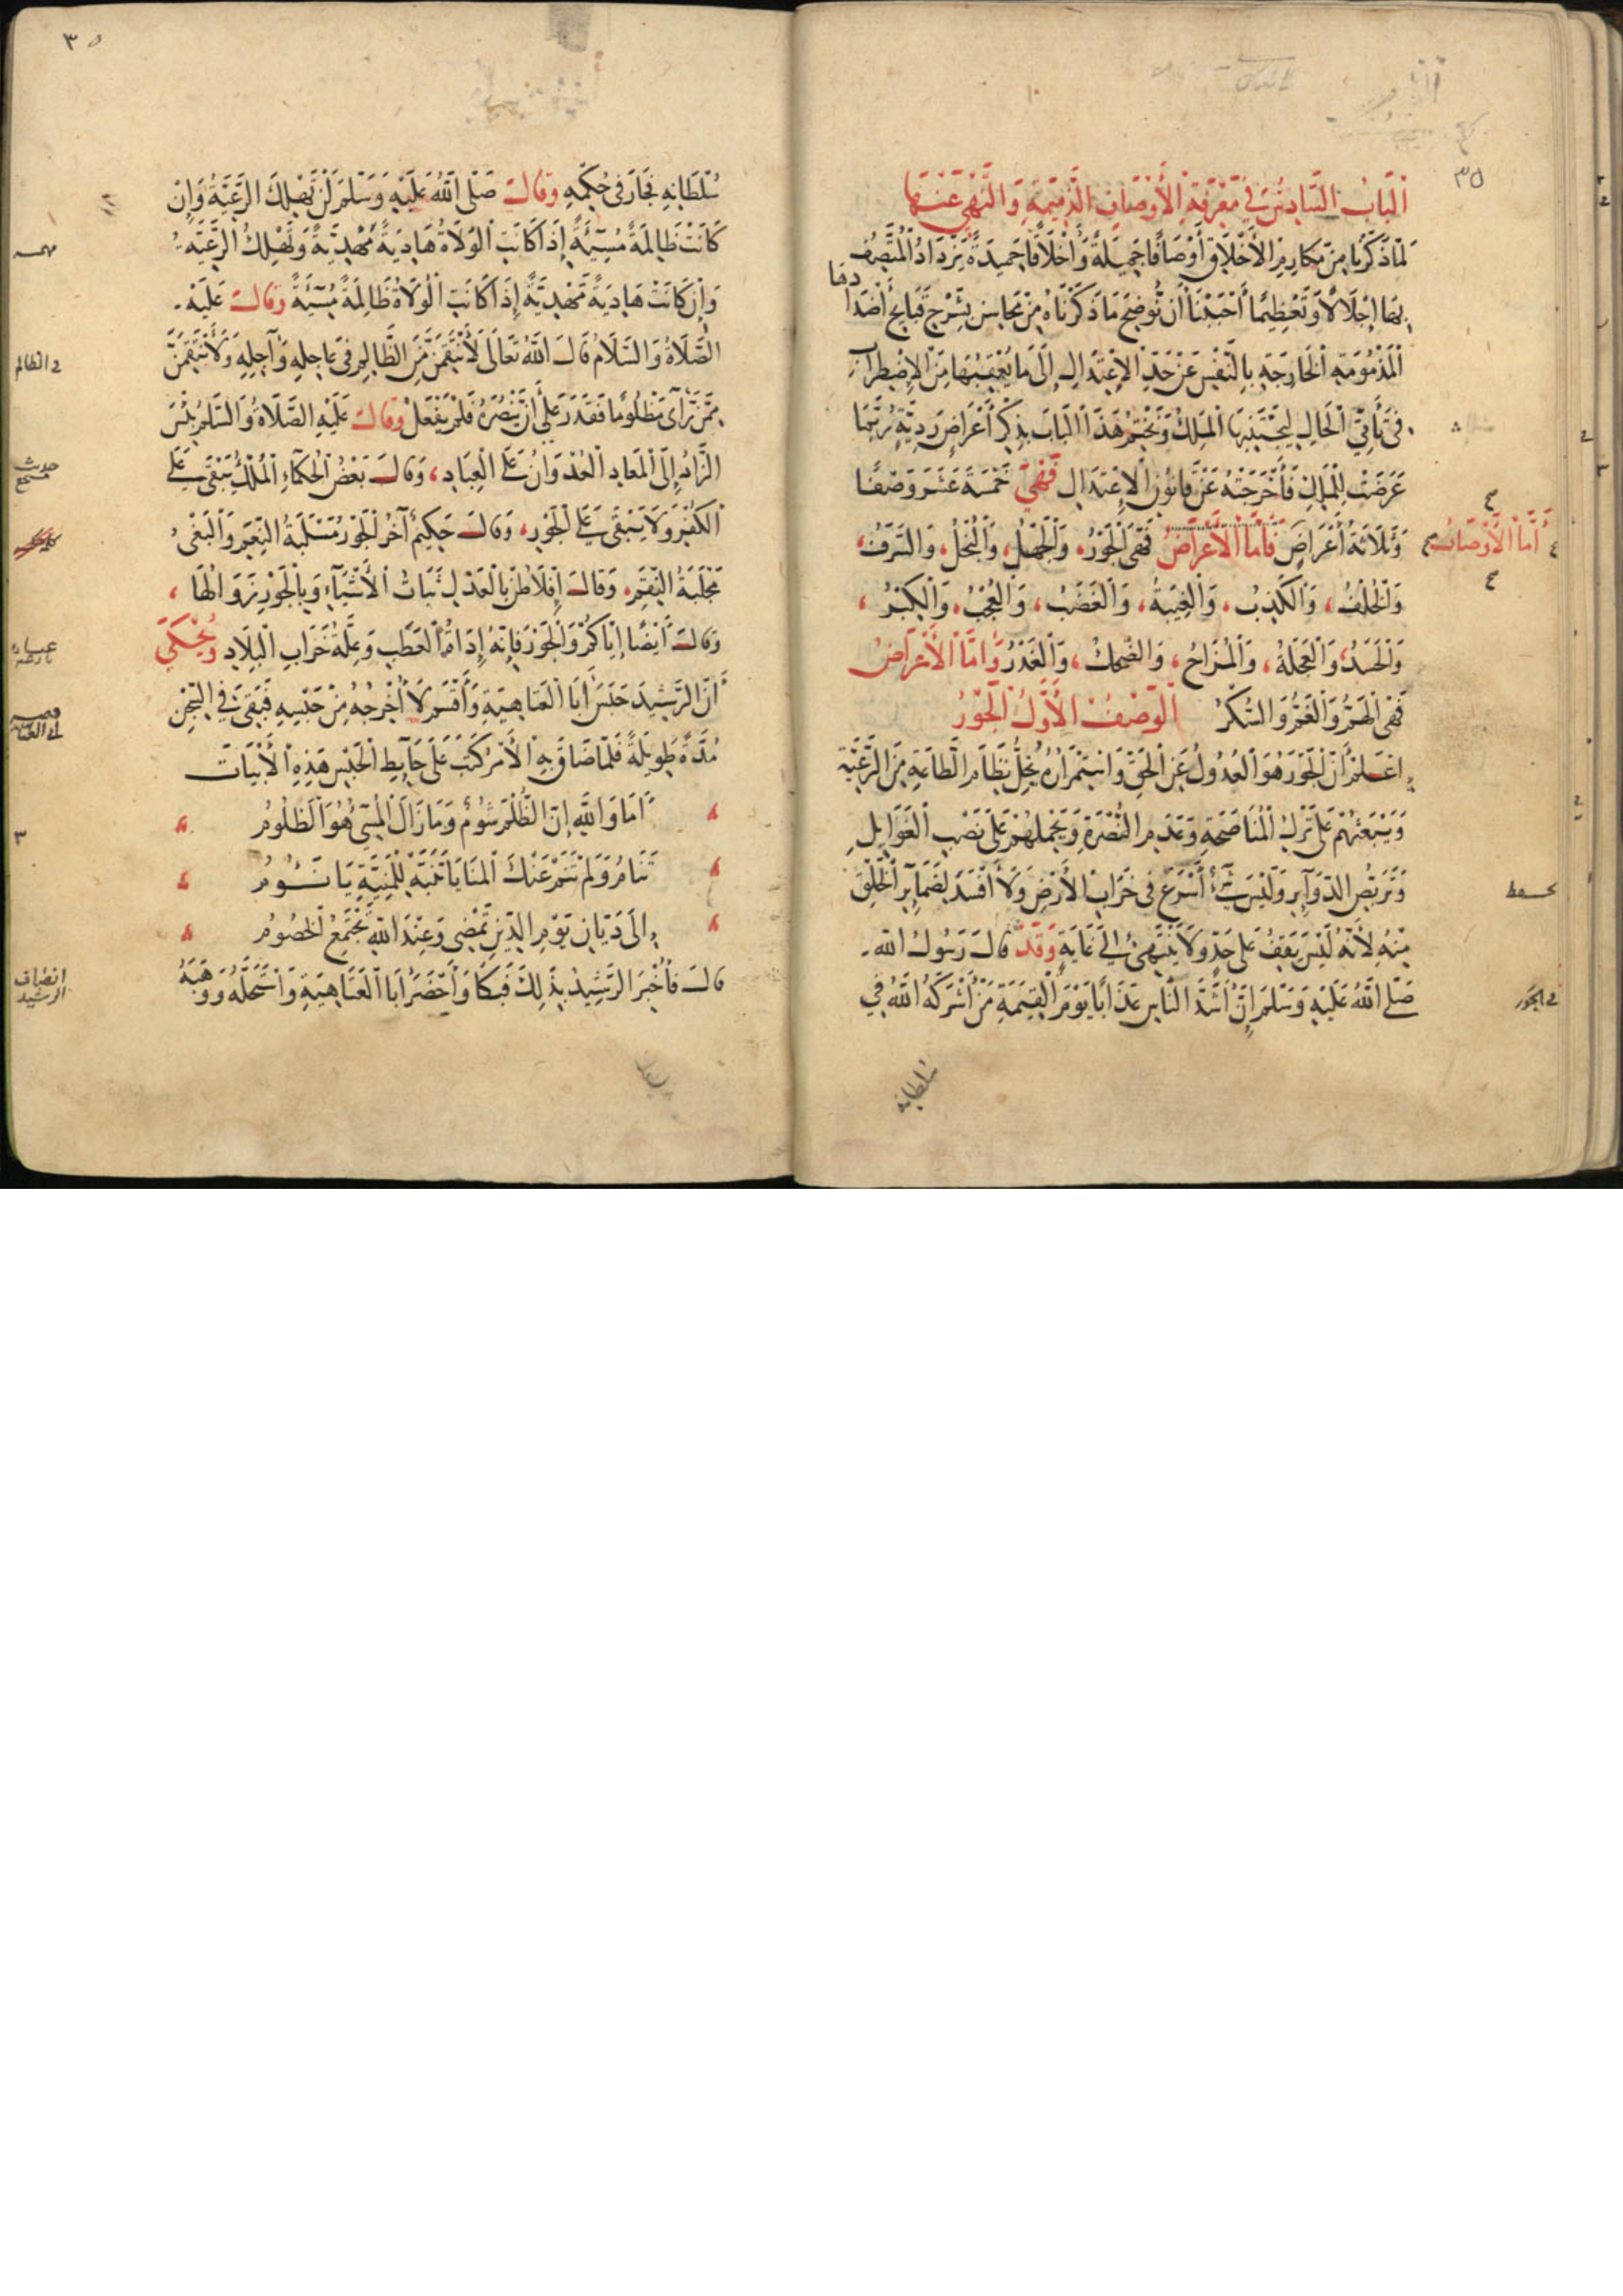 اَلْبَابُ السَّادِسُ فِي مَعْرِفَةِ الأَوْصَافِ الذَّمِيمَةِ وَالنَّهْيِ عَنْهَا
لمّا ذكرنا من مكارم الأخلاق أوصافًا جميلةً وأخلاقًا حميدةً يزداد المتّصف
بها إجلالًا وتعظيمًا أحببنا أن نوضح ما ذكرناه من محاسن بشرح قبايح أضدادها
المذمومة الخارجة بالنفس عن حدّ الاعتدال إلى ما يعقبها من الاضطراب
في تأتي الحال ليجتنبها الملك ونختم هذا الباب بذكر أعراض رديّة ربّما
عرضت للملك فأخرجته عن قانون الاعتدال فهي خمسة عشر وصفًا
وثلاثة أعراض فأما الأعراض فهي الجور، والجهل، والبخل، والسرف،
أما الأوصاف
والخلف، والكذب، والغيبة، والغضب، والعجب، والكبر،
والحسد، والعجلة، والمزاح، والضحك، والغدر وامّا الأعراض
فهي الهمّ والغمّ والسكر الوصف الأول الجور
اعلم أن الجور هو العدول عن الحق واستمراره يخلّ نظام الطاعة من الرعيّة
ويبعثهم على ترك المناصحة وعدم النصرة ويحملهم على نصب الغوايل
وتربّص الدوآير وليس شيء أسرع في خراب الأرض ولا أفسد لضمآير الخلق
منه لأنه ليس يقف على حدّ ولا ينتهي إلى غاية وقد قال رسول الله
صلى الله عليه وسلم إن أشدّ الناس عذابًا يوم القيمة من أشركه الله في
في الجور
سلطانه
٣٥
سلطانه فجار في حكمه وقال صلى الله عليه وسلم لن تهلك الرعيّة وإن
كانت ظالمة مسيئة إذا كانت الولاة هادية مهديّة وتهلك الرعيّة
وإن كانت هادية مهديّة إذا كانت الولاة ظالمة مسيئة وقال عليه
الصلاة والسلام قال الله تعالى لأنتقمنّ من الظالم في عاجله وآجله ولأنتقمنّ
في الظالم
ممّن رآى مظلومًا فقدر على أن ينصره فلم يفعل وقال عليه الصلاة والسلام بئس
الزاد إلى المعاد العدوان على العباد، وقال بعض الحكمآء الملك يبقى على
حديث
الكفر ولا يبقى على الجور، وقال حكيم آخر الجور مسلبة النعم والبغي
مجلبة النقم، وقال إفلاطن بالعدل ثبات الأشيآء وبالجور زوالها،
وقال أيضًا إياكم والجور فإنه إدام العطب وعلّة خراب البلاد ويحكى
أنّ الرشيد حبس أبا العتاهية وأقسم لا أخرجه من حبسه فبقي في السجن
مدّة طويلة فلما ضاق به الأمر كتب على حآيط الحبس هذه الأبيات
أَمَا وَاللَّهِ إِنَّ الظُّلْمَ شُومٌ وَمَا زَالَ الْمُسِي هُوَ الظَّلُومُ
تَنَامُ وَلَمْ تَنَمْ عَنْكَ الْمَنَايَا تَنَبَّهْ لِلْمَنِيَّةِ يَا نَـئُـومُ
إِلَى دَيَّانِ يَوْمِ الدِّينِ نَمْضِي وَعِنْدَ اللهِ تَجْتَمِعُ الْخُصُومُ
قال فأخبر الرشيد بذلك فبكا وأحضر أبا العتاهية واستحلّه ووهبه
انصاف
الرشيد